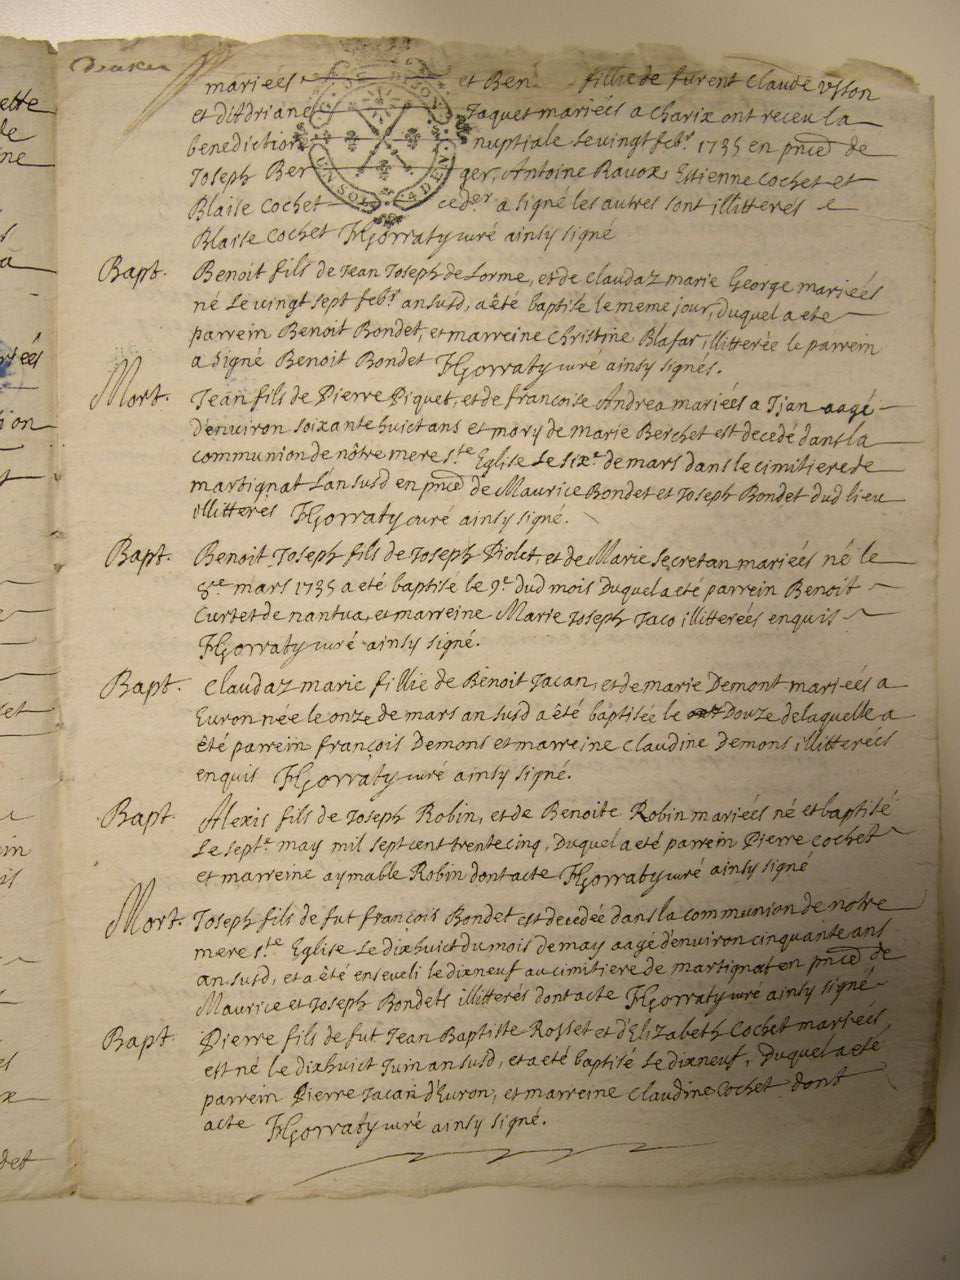 mariéés et Ben fillie de furent Claude Usson
et d'Adriane Jaquet mariéés a Charix ont receu la
benediction nuptiale le vingt feb.r 1735 en pnce de
Joseph Ber ger, Antoine Ravox, Estienne Cochet et
Blaise Cochet ced.er a signé les autres sont illitterés e
Blaise Cochet FHGorraty curé ainsy signé
Bapt. Benoit fils de Jean Joseph de Lorme, et de Claudaz marie George mariéés
né Le vingt sept feb.r an susd, a été baptisé le meme jour, duquel a ete
parrein Benoit Bondet, et marreine Christine Blafar illitterée le parrein
a signé Benoit Bondet FHGorraty curé ainsy signés.
Mort. Jean fils de Pierre Piquet, et de francoise Andrea mariéés a Ijan aagé
d'environ soixante huict ans et mary de Marie Berchet est decedé dans la
communion de nôtre mere s.te Eglise Le six.e de mars dans le cimitiere de
martignat L'an susd en pnce de Maurice Bondet et Joseph Bondet dud lieu
illitterés FHGorraty curé ainsy signé.
Bapt. Benoit Joseph fils de Joseph Piolet, et de Marie Secretan mariéés né le
8.e mars 1735 a eté baptisé le 9.e dud mois Duquel a eté parrein Benoit
Curtet de nantua, et marreine Marie Joseph Jaco illitteréés enquis
FHGorraty curé ainsy signé.
Bapt. Claudaz marie fillie de Benoit Jacan, et de marie Demont mariéés a
Evron née le onze de mars an susd a été baptisée le Douze de laquelle a
été parrein françois Demons et marreine Claudine Demons illitteréés
enquis FHGorraty curé ainsy signé.
Bapt Alexis fils de Joseph Robin, et de Benoite Robin mariéés né et baptisé
Le sept.e may mil sept cent trente cinq, Duquel a eté parrein Pierre Cochet
et marreine aymable Robin dont acte FHGorraty curé ainsy signé
Mort. Joseph fils de fut françois Bondet est decedée dans la communion de notre
mere s.te Eglise Le dixhuict du mois de may aagé d'environ cinquante ans
an susd, et a été enseveli le dixneuf au cimitiere de martignat en pnce de
Maurice et Joseph Bondets illitterés dont acte FHGorraty curé ainsy signé
Bapt Pierre fils de fut Jean Baptiste Rosset et d'Elizabeth Cochet mariéés,
est né le dixhuict Juin an susd, et a eté baptisé Le dixneuf, Duquel a eté
parrein Pierre Jacan d'Evron, et marreine Claudine Cochet dont
acte FHGorraty curé ainsy signé.